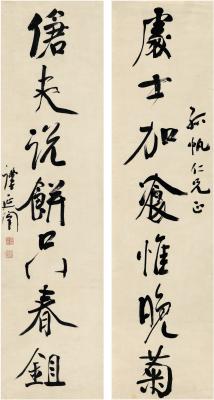 處士加餐惟晚菊
孤帆仁兄正
傖夫說餅只春鉏
譚延闓